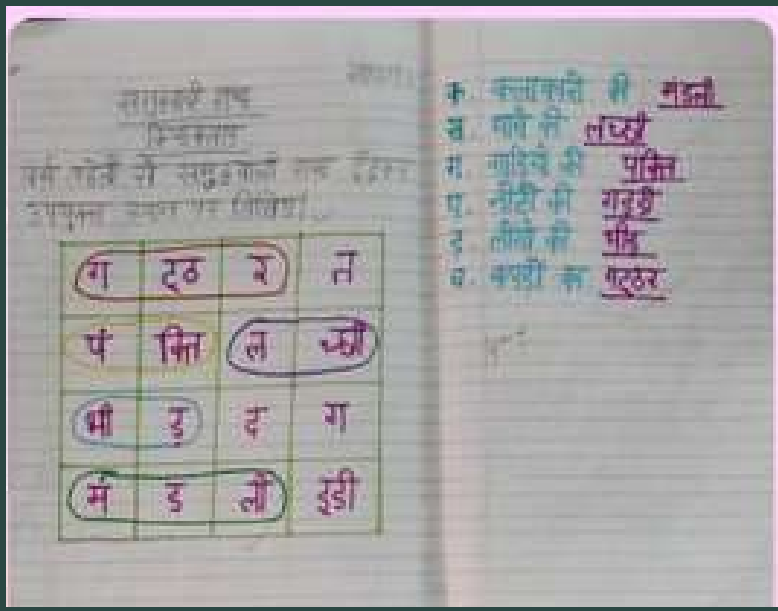 समूहवाची शब्द
क्रियाकलाप
वर्ग पहेली से समूहवाची शब्द ढूँढकर
उपयुक्त स्थान पर लिखिए।
ग ट्ठ र त
पं क्ति ल च्छी
भी ड़ द ग
मं ड ली ड्डी
क. कलाकारों की मंडली
ख. की लच्छी
ग. की पंक्ति
नोटों की गड्डी
लोगों की भीड़
कपड़ों का गट्ठर